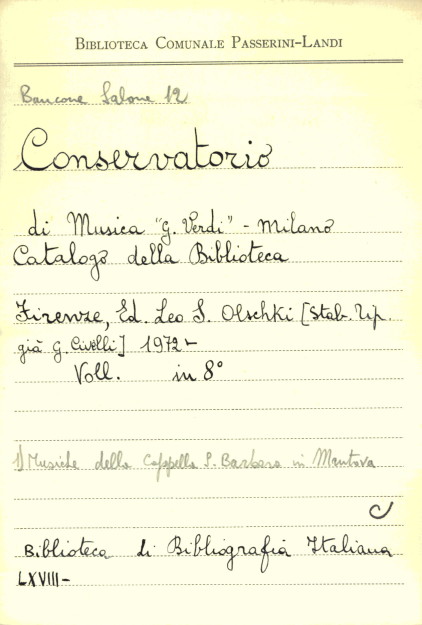 BIBLIOTECA COMUNALE PASSERINI-LANDI
Bancone Salone 12
Conservatorio
di Musica "G. Verdi" - Milano
Catalogo della Biblioteca
Firenze, Ed. Leo S. Olschki [Stab. Tip.
già G. Civelli] 1972-
Voll. in 8°
1) Musiche della Cappella S. Barbara in Mantova
Biblioteca di Bibliografia Italiana
LXVIII-